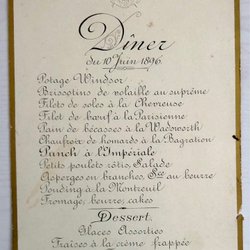 Dîner
du 10 Juin 1896.
Potage Windsor
Brissotins de volaille au suprême
Filets de soles à la Chevreuse
Filet de bœuf à la Parisienne
Pain de bécasses à la Wadsworth
Chaufroix de homards à la Bagration
Punch à l'Impériale
Petits poulets rôtis, Salade
Asperges en branches, Sce au beurre
Pouding à la Montreuil
Fromage, beurre, cakes
Dessert.
Glaces Assorties
Fraises à la crème frappée